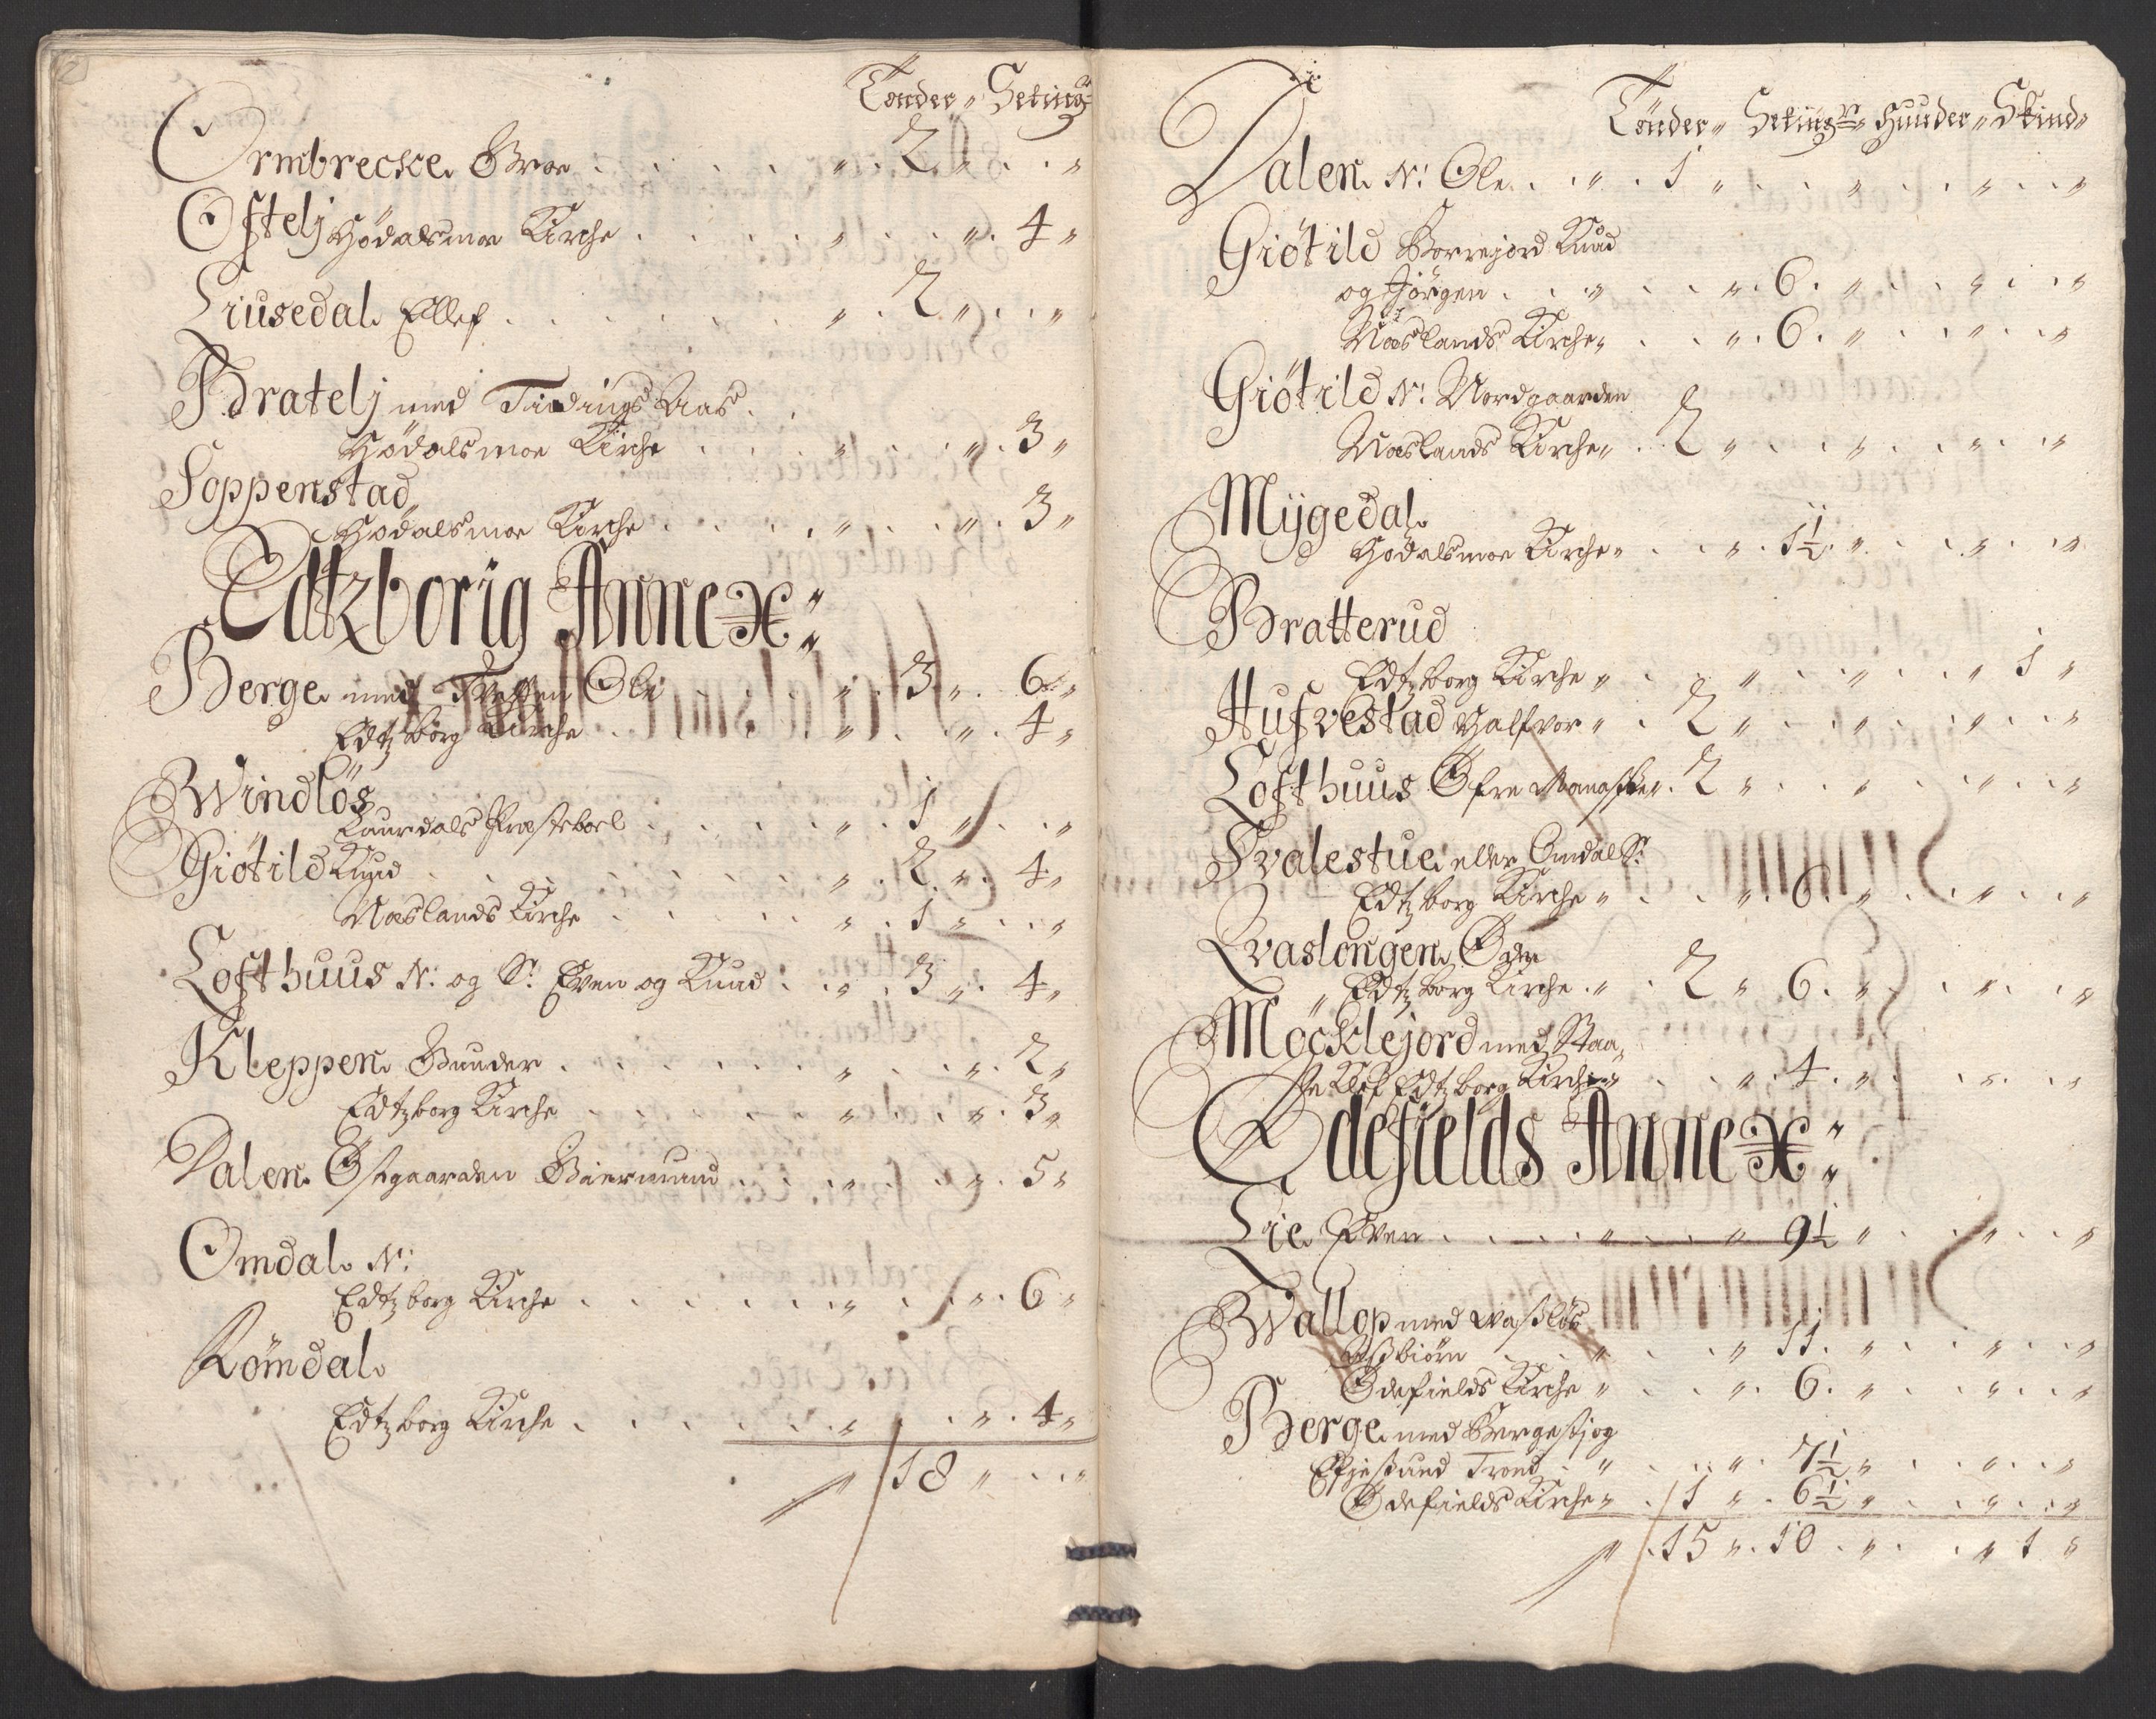 Tönder „ Setting^r
Ormbrecke. Groe . . . . . „ . 2 „ . . „
Oftelj Hödalsmoe Kirche . . . . „ . . „ . 4 „
Liusedal. Ellef . . . . . . „ . 2 „ . . „
Bratelj med Tindings Aas .
Hödalsmoe Kirche . . . „ . . „ . 3 „
Soppenstad
Hödalsmoe Kirche . . . „ . . „ . 3 „
Edtzborig Annex:
Berge. med Tveten Ole . . . „ . 3 „ . 6 „
Edtzborg Kirche . . . . „ . . „ . 4 „
Windlös
Laurdals Præsteboel . . . . „ . 1 „ . . „
Giötild Knud . . . . . . „ . 2 „ . 4 „
Næslands Kirche . . . . „ . 1 „ . . „
Lofthuus N: og S: Even og Knud . . „ . 3 „ . 4 „
Kleppen. Gunder . . . . . „ . . „ . 2 „
Edtzborg Kirche . . . . „ . . „ . 3 „
Dalen. Østgaarden Giermund . . . „ . . „ . 5 „
Omdal. N:
Edtzborg Kirche . . . . . „ . . „ . 6 „
Römdal.
Edtzborg Kirche . . . . . „ . . „ . 4 „
„ 18 „ . . „
Tönder „ Setting^r „ Huuder „ Skind „
Dalen. N: Ole . . „ . 1 „ . . „ . . „ . . „
Giötild Borrejord Knud
og Jörgen . . „ . . „ . 6 . „ . . „ . . „
Næslands Kirche „ . . „ . 6 . „ . . „ . . „
Giötild N: Nordgaarden
Næslands Kirche „ . 2 „ . . „ . . „ . . „
Mijgedal.
Hödalsmoe Kirche „ . . „ . 1½ . „ . . „ . . „
Bratterud
Edtzborg Kirche „ . . „ . . „ . . „ 1 „
Hufvestad Halfvor „ . 2 „ . . „ . . „ . . „
Lofthuus Øfre Manaße „ . 2 „ . . „ . . „ . . „
Svalestue. eller Omdal S:
Edtzborg Kirche „ . . „ . 6 . „ . . „ . . „
Qvaslongen. Ode
„ Edtzborg Kirche . „ . 2 „ 6 . „ . . „ . . „
Möcklejord med Staa„
Ellef Edtzborg Kirche „ . . „ . 4 . „ . . „ . . „
Ödefields Annex:
Lie. Even . . . „ . . „ 9½ „ . . „ . . „
Wallop med Waßlös
Asbiörn . . . „ . . „ 11 . „ . . „ . . „
Ödefields Kirche „ . . „ . 6 . „ . . „ . . „
Berge. med Bergestjog
Trond . „ . . „ . 7½ „ . . „ . . „
Ödefields Kirche „ . 1 „ . 6½ „ . . „ . . „
„ . 15 „ . 10 . „ . . „ 1 „